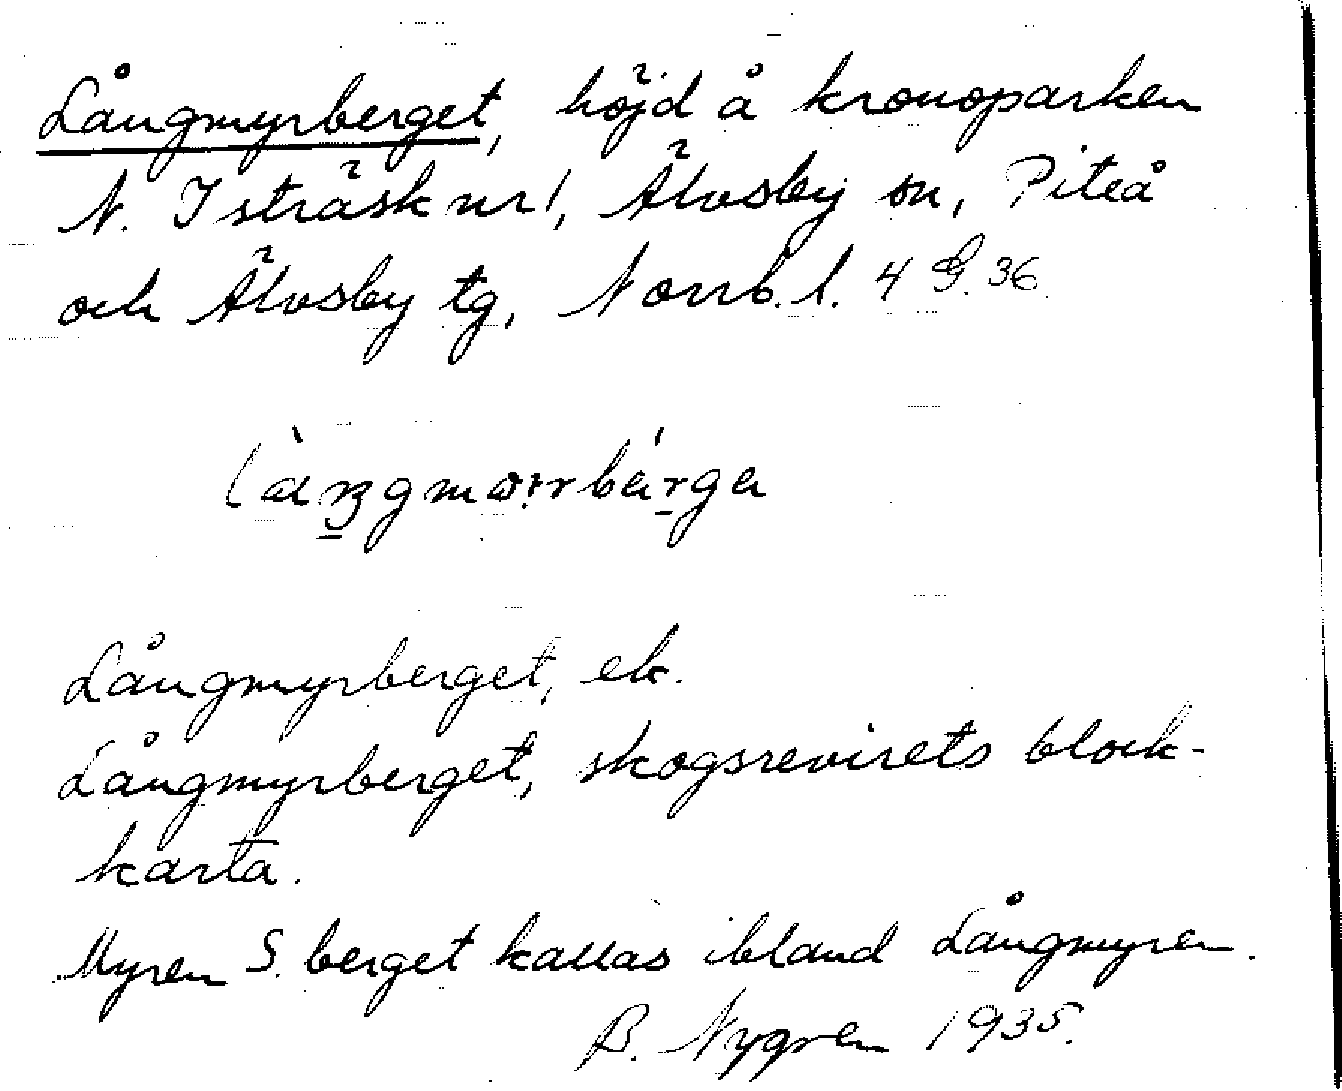 Långmyrberget, höjd å kronoparken
N. Isträsk nr 1, Älvsby sn, Piteå
och Älvsby tg, Norrb. l. 4 G. 36.
Långmyrberget, ek.
Långmyrberget, skogsrevirets block-
karta.
Myren S. berget kallas ibland Långmyren.
B. Nygren 1935.